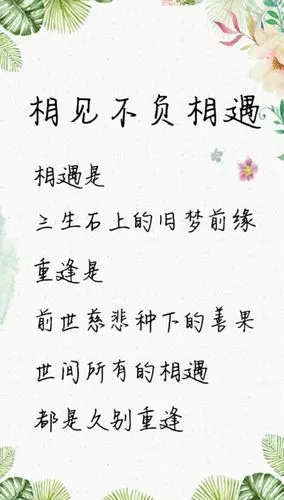 相见不负相遇
相遇是
三生石上的旧梦前缘
重逢是
前世慈悲种下的善果
世间所有的相遇
都是久别重逢